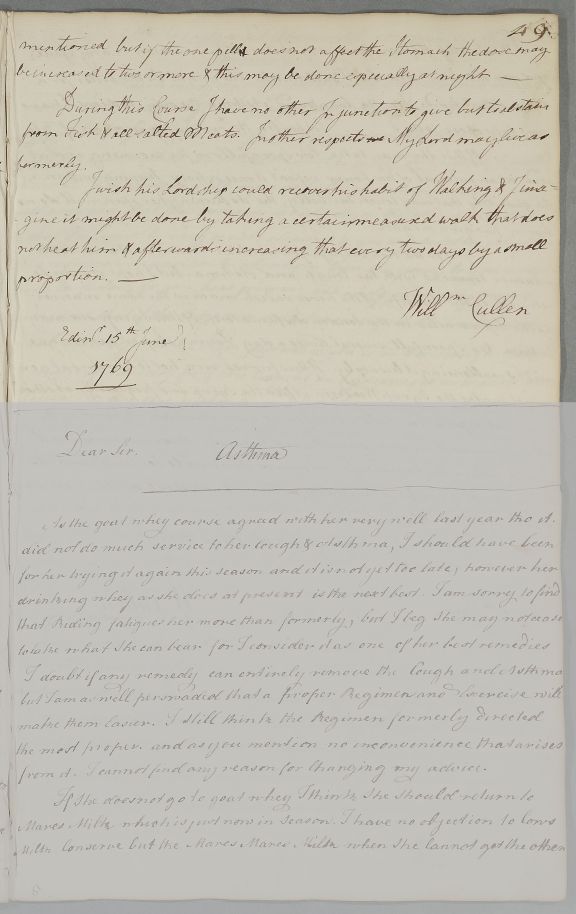 49.
mentioned but if the one pill does not affect the Stomach the dose may
be increased to two or more & this may be done especially at night —
During this Course I have no other Injunction to give but to abstain
from Fish & all salted Meats. In other respects My Lord may live as
formerly.
I wish his Lordship could recover his habit of Walking & Ima-
-gine it might be done by taking a certain measured walk that does
not heat him & afterwards increasing that every two days by a small
proportion. —
Will^m Cullen
Edin^r. 15^th June
1769
Dear Sir. Asthma
As the goat whey course agreed with her very well last year tho it.
did not do much service to her Cough & Asthma, I should have been
for her trying it again this season and it is not yet too late, however her
drinking whey as she does at present is the next best. I am sorry to find
that Riding fatigues her more than formerly, but I beg she may not cease
to take what she can bear for I consider it as one of her best remedies
I doubt if any remedy can entirely remove the Cough and Asthma
but I am as well perswaded that a proper Regimen and Exercise will
make them easier. I still think the Regimen formerly directed
the most proper. and as you mention no inconvenience that arises
from it. I cannot find any reason for Changing my advice.
If she does not go to goat whey I think she should return to
Mares Milk which is just now in season. I have no objection to Cows
Milk Conserve but the Mares Mares Milk when she cannot get the other